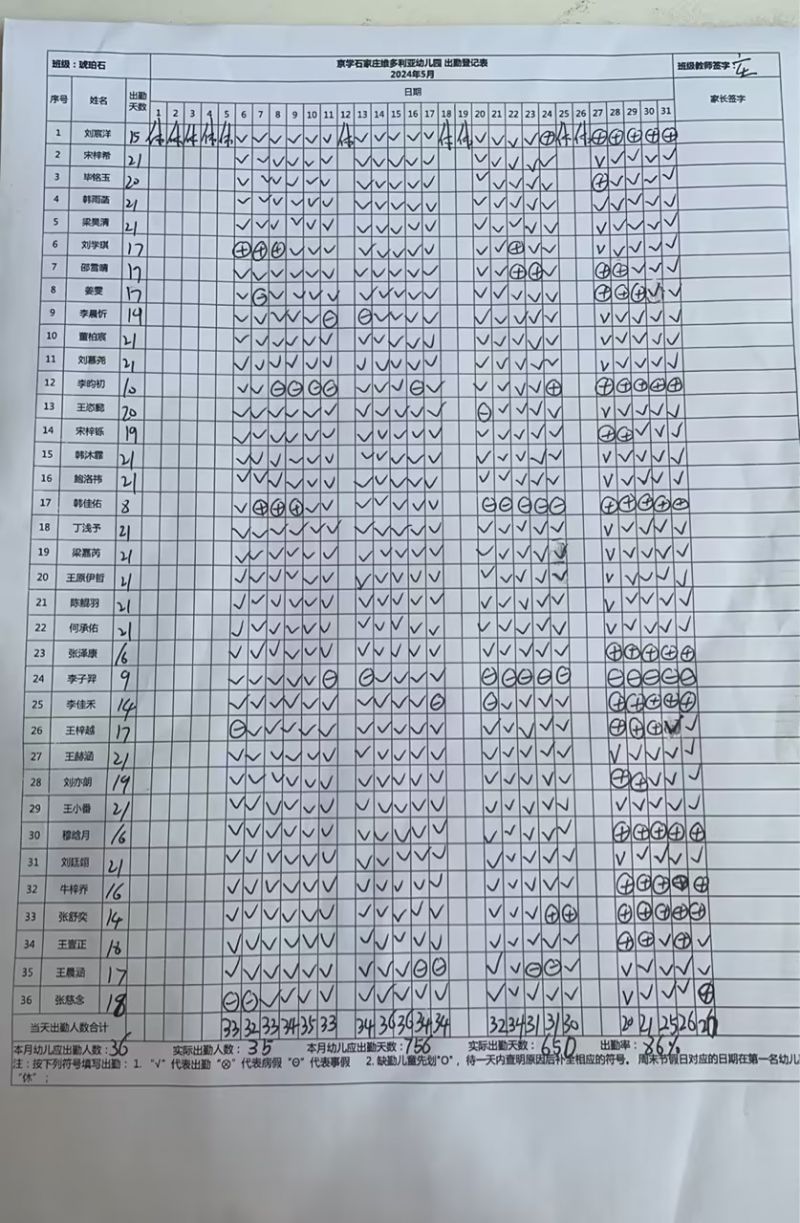 班级：琥珀石 京学石家庄维多利亚幼儿园 出勤登记表 班级教师签字：
2024年5月
序号 姓名 出勤天数 日期 家长签字
1 2 3 4 5 6 7 8 9 10 11 12 13 14 15 16 17 18 19 20 21 22 23 24 25 26 27 28 29 30 31
1 刘宸洋 15 休 休 休 休 休 √ √ √ √ √ √ 休 √ √ √ √ √ 休 休 √ √ √ √ ⊕ 休 休 ⊕ ⊕ ⊕ ⊕ ⊕
2 宋梓希 21 √ √ √ √ √ √ √ √ √ √ √ √ √ √ √ √ √ √ √ √ √
3 毕铭玉 20 √ √ √ √ √ √ √ √ √ √ √ √ √ √ √ √ ⊕ √ √ √ √
4 韩雨菡 21 √ √ √ √ √ √ √ √ √ √ √ √ √ √ √ √ √ √ √ √ √
5 梁昊清 21 √ √ √ √ √ √ √ √ √ √ √ √ √ √ √ √ √ √ √ √ √
6 刘学琪 17 ⊕ ⊕ ⊕ √ √ √ √ √ √ √ √ √ √ ⊕ √ √ √ √ √ √ √
7 邵雪晴 17 √ √ √ √ √ √ √ √ √ √ √ √ √ ⊕ ⊕ √ ⊕ ⊕ √ √ √
8 姜雯 17 √ ⊖ √ √ √ √ √ √ √ √ √ √ √ √ √ √ ⊕ ⊕ ⊕ √ √
9 李晨忻 19 √ √ √ √ √ ⊖ ⊖ √ √ √ √ √ √ √ √ √ √ √ √ √ √
10 董柏宸 21 √ √ √ √ √ √ √ √ √ √ √ √ √ √ √ √ √ √ √ √ √
11 刘慕尧 21 √ √ √ √ √ √ √ √ √ √ √ √ √ √ √ √ √ √ √ √ √
12 李昀初 10 √ √ ⊖ ⊖ ⊖ ⊖ √ √ √ ⊖ √ √ √ √ √ ⊕ ⊕ ⊕ ⊕ ⊕ ⊕
13 王恣懿 20 √ √ √ √ √ √ √ √ √ √ √ ⊖ √ √ √ √ √ √ √ √ √
14 宋梓铄 19 √ √ √ √ √ √ √ √ √ √ √ √ √ √ √ √ ⊕ ⊕ √ √ √
15 韩沐霏 21 √ √ √ √ √ √ √ √ √ √ √ √ √ √ √ √ √ √ √ √ √
16 鲍洛祎 21 √ √ √ √ √ √ √ √ √ √ √ √ √ √ √ √ √ √ √ √ √
17 韩佳佑 8 √ ⊕ ⊕ ⊕ √ √ √ √ √ √ √ ⊖ ⊖ ⊖ ⊖ ⊖ ⊕ ⊕ ⊕ ⊕ ⊖
18 丁浅予 21 √ √ √ √ √ √ √ √ √ √ √ √ √ √ √ √ √ √ √ √ √
19 梁嘉芮 21 √ √ √ √ √ √ √ √ √ √ √ √ √ √ √ √ √ √ √ √ √
20 王原伊哲 21 √ √ √ √ √ √ √ √ √ √ √ √ √ √ √ √ √ √ √ √ √
21 陈鲲羽 21 √ √ √ √ √ √ √ √ √ √ √ √ √ √ √ √ √ √ √ √ √
22 何承佑 21 √ √ √ √ √ √ √ √ √ √ √ √ √ √ √ √ √ √ √ √ √
23 张泽康 16 √ √ √ √ √ √ √ √ √ √ √ √ √ √ √ √ ⊕ ⊕ ⊕ ⊕ ⊕
24 李子羿 9 √ √ √ √ √ ⊖ ⊖ √ √ √ √ ⊖ ⊖ ⊖ ⊖ ⊖ ⊖ ⊖ ⊖ ⊖ ⊖
25 李佳禾 14 √ √ √ √ √ √ √ √ √ √ ⊖ ⊖ √ √ √ √ ⊕ ⊕ ⊕ ⊕ ⊕
26 王梓越 17 ⊖ √ √ √ √ √ √ √ √ √ √ √ √ √ √ √ ⊕ ⊕ ⊕ √ √
27 王赫涵 21 √ √ √ √ √ √ √ √ √ √ √ √ √ √ √ √ √ √ √ √ √
28 刘亦朗 19 √ √ √ √ √ √ √ √ √ √ √ √ √ √ √ √ ⊕ ⊕ √ √ √
29 王小番 21 √ √ √ √ √ √ √ √ √ √ √ √ √ √ √ √ √ √ √ √ √
30 穆晗月 16 √ √ √ √ √ √ √ √ √ √ √ √ √ √ √ √ ⊕ ⊕ ⊕ ⊕ ⊕
31 刘廷翊 21 √ √ √ √ √ √ √ √ √ √ √ √ √ √ √ √ √ √ √ √ √
32 牛梓乔 16 √ √ √ √ √ √ √ √ √ √ √ √ √ √ √ √ ⊕ ⊕ ⊕ ⊕ ⊕
33 张舒奕 14 √ √ √ √ √ √ √ √ √ √ √ √ √ √ ⊕ ⊕ ⊕ ⊕ ⊕ ⊕ ⊕
34 王壹正 18 √ √ √ √ √ √ √ √ √ √ √ √ √ √ √ √ ⊕ ⊕ √ ⊕ √
35 王晨涵 17 √ √ √ √ √ √ √ √ √ ⊖ ⊖ √ √ ⊖ ⊖ √ √ √ √ √ √
36 张慈念 18 ⊖ ⊖ √ √ √ √ √ √ √ √ √ √ √ √ √ √ √ √ √ √ ⊕
当天出勤人数合计 33 32 33 34 35 33 34 36 36 34 34 32 34 31 31 30 20 21 25 26 26
本月幼儿应出勤人数：36 实际出勤人数：35 本月幼儿应出勤天数：756 实际出勤天数：650 出勤率：86%
注：按下列符号填写出勤：1. "√" 代表出勤 "⊗" 代表病假 "⊖" 代表事假 2. 缺勤儿童先划"O"，待一天内查明原因后补全相应的符号。 周末节假日对应的日期在第一名幼儿
"休"；